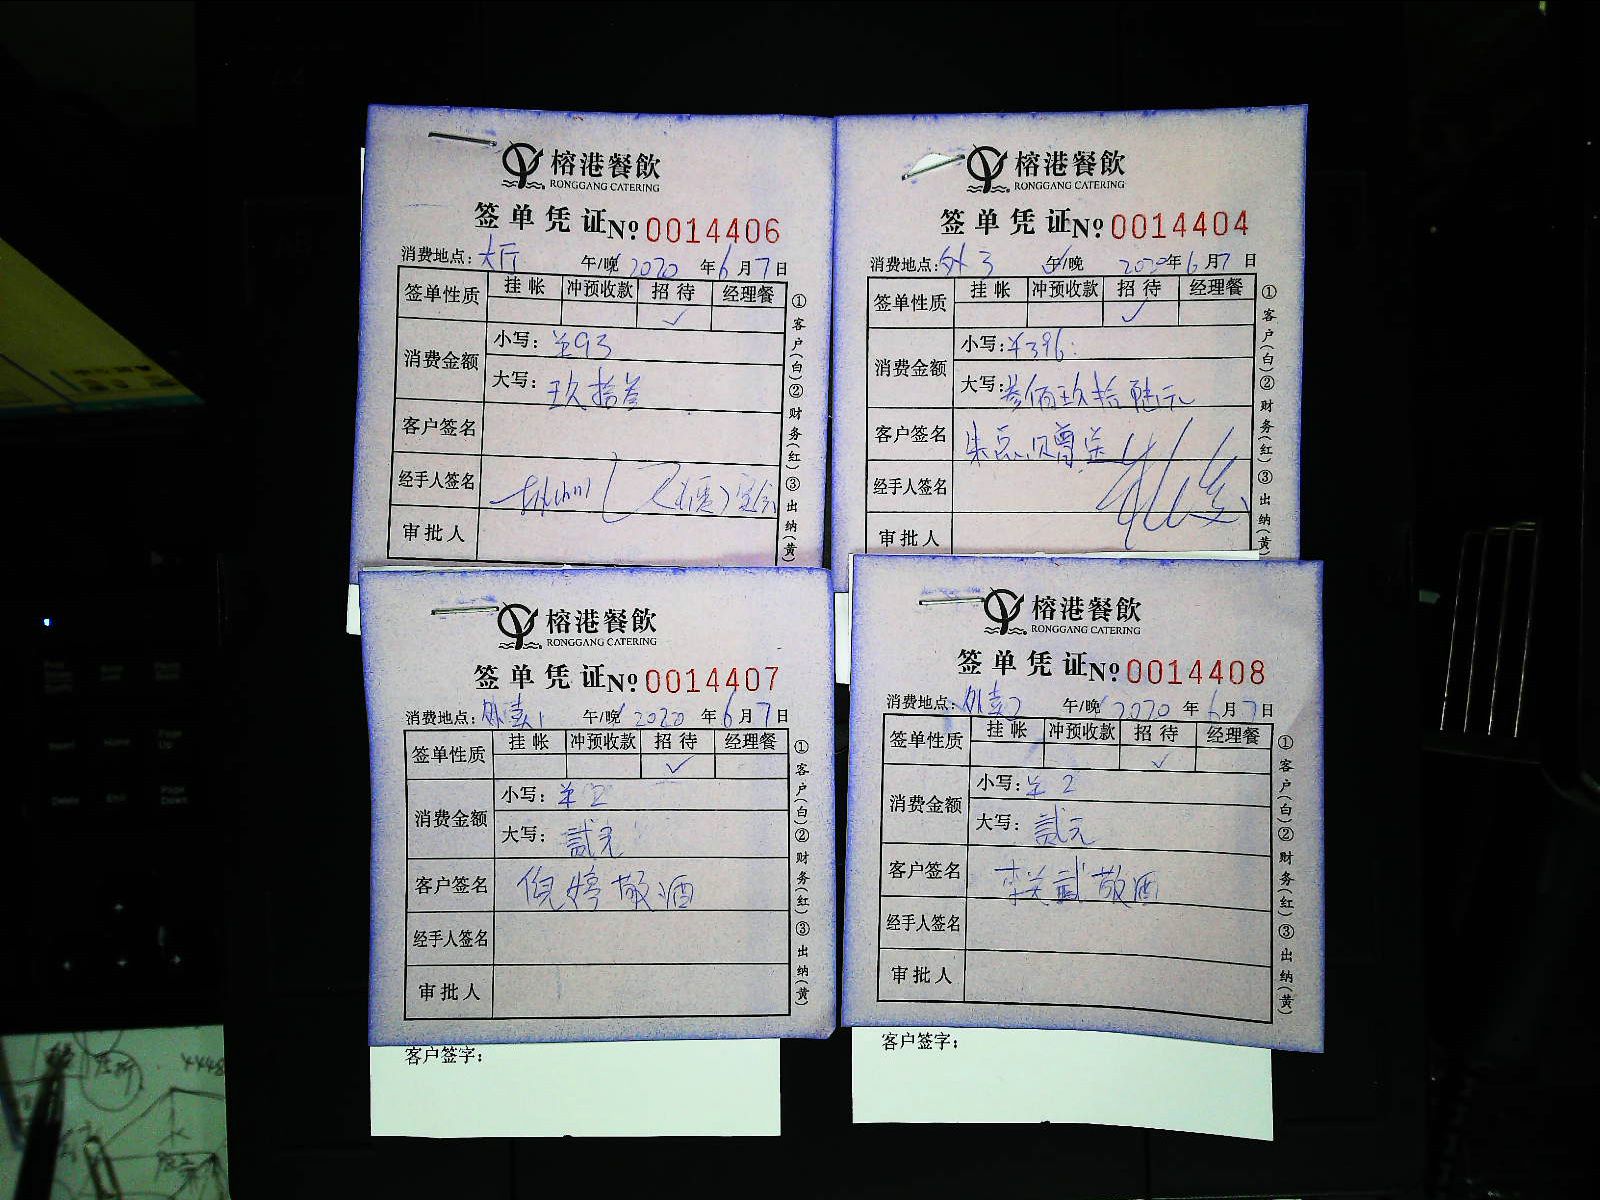 榕港餐飲
RONGGANG CATERING
签单凭证 № 0014406
消费地点: 大厅 午/晚 2020年6月7日
签单性质 挂帐 冲预收款 招待 经理餐
✓
消费金额 小写: 羊93
大写: 玖拾叁
客户签名
经手人签名
审批人
①客户(白)②财务(红)③出纳(黄)
榕港餐飲
RONGGANG CATERING
签单凭证 № 0014404
消费地点: 外3 午/晚 2020年6月7日
签单性质 挂帐 冲预收款 招待 经理餐
✓
消费金额 小写: ¥396.
大写: 叁佰玖拾陆元
客户签名 朱总贝赠送
经手人签名
审批人
①客户(白)②财务(红)③出纳(黄)
榕港餐飲
RONGGANG CATERING
签单凭证 № 0014407
消费地点: 外卖1 午/晚 2020年6月7日
签单性质 挂帐 冲预收款 招待 经理餐
✓
消费金额 小写: 羊2
大写: 贰元
客户签名 倪婷敬酒
经手人签名
审批人
①客户(白)②财务(红)③出纳(黄)
客户签字:
榕港餐飲
RONGGANG CATERING
签单凭证 № 0014408
消费地点: 外卖2 午/晚 2020年6月7日
签单性质 挂帐 冲预收款 招待 经理餐
✓
消费金额 小写: 羊2
大写: 贰元
客户签名 李关武敬酒
经手人签名
审批人
①客户(白)②财务(红)③出纳(黄)
客户签字:
4448